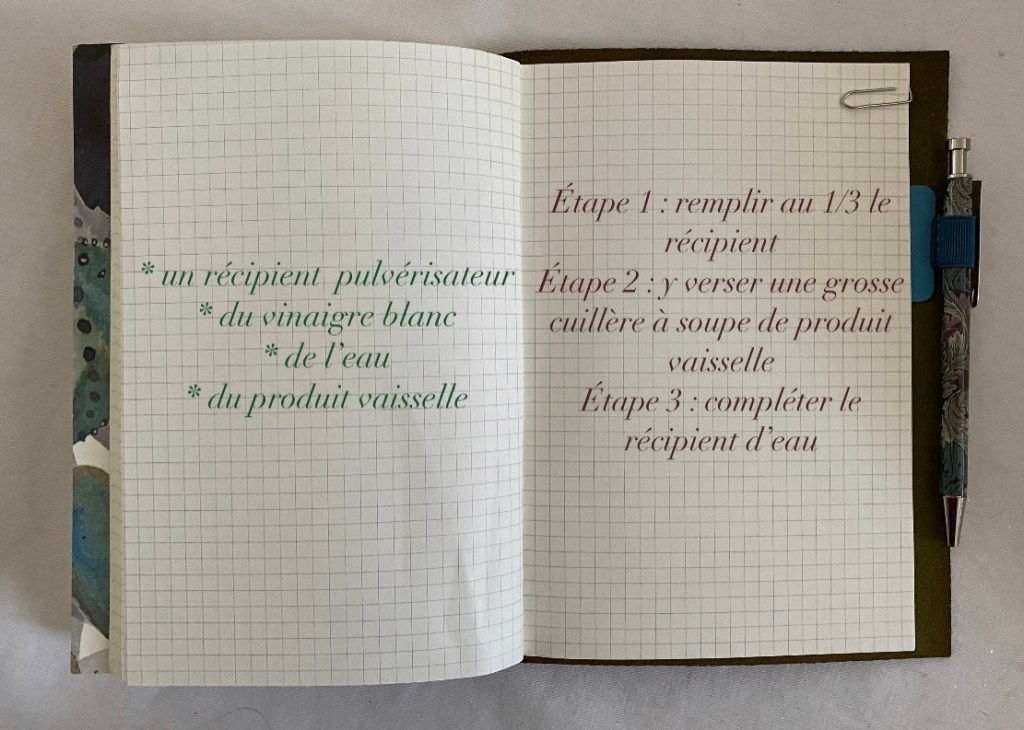 * un récipient  pulvérisateur
* du vinaigre blanc
* de l’eau
* du produit vaisselle
Étape 1 : remplir au 1/3 le
récipient
Étape 2 : y verser une grosse
cuillère à soupe de produit
vaisselle
Étape 3 : compléter le
récipient d’eau